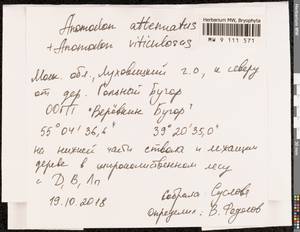 Anomodon attenuatus
+ Anomodon viticulosus
Herbarium MW, Bryophyta
MW 9 111 571
Моск. обл., Луховицкий г.о., к северу
от дер. Гольный Бугор
ООПТ "Верёвкин Бугор"
55°04'36,6" 39°20'35,0"
на нижней части ствола и лежащем
дереве в широколиственном лесу
с Д, В, Лп
19.10.2018
собрала Суслова
Определил: В. Федосов